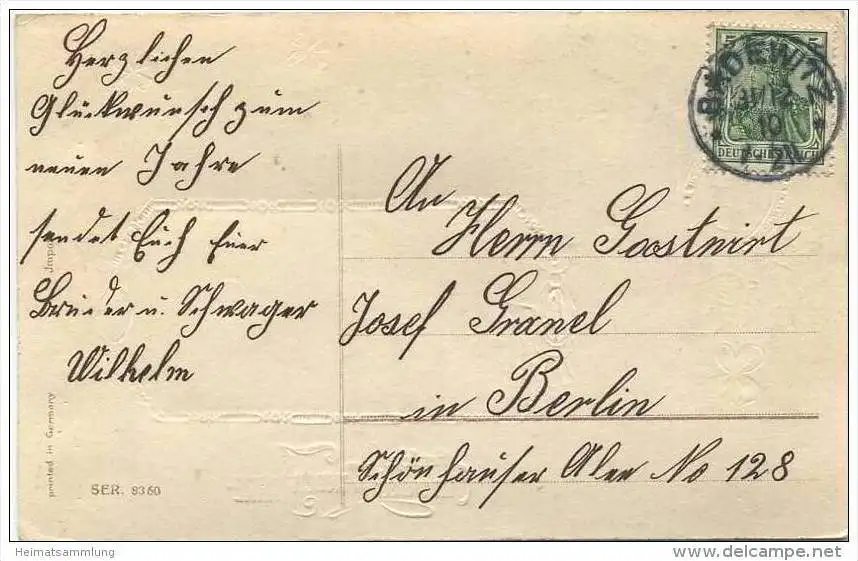 Herzlichen
Glückwunsch zum
neuen Jahre
sendet Euch Euer
Bruder u. Schwager
Wilhelm
An
Herrn Gastwirt
Josef Granel
in Berlin
Schönhauser Alee No 128
BADEWITZ
31/12
10
DEUTSCHES REICH
printed in Germany
SER. 8360
Heimatsammlung
www.delcampe.net